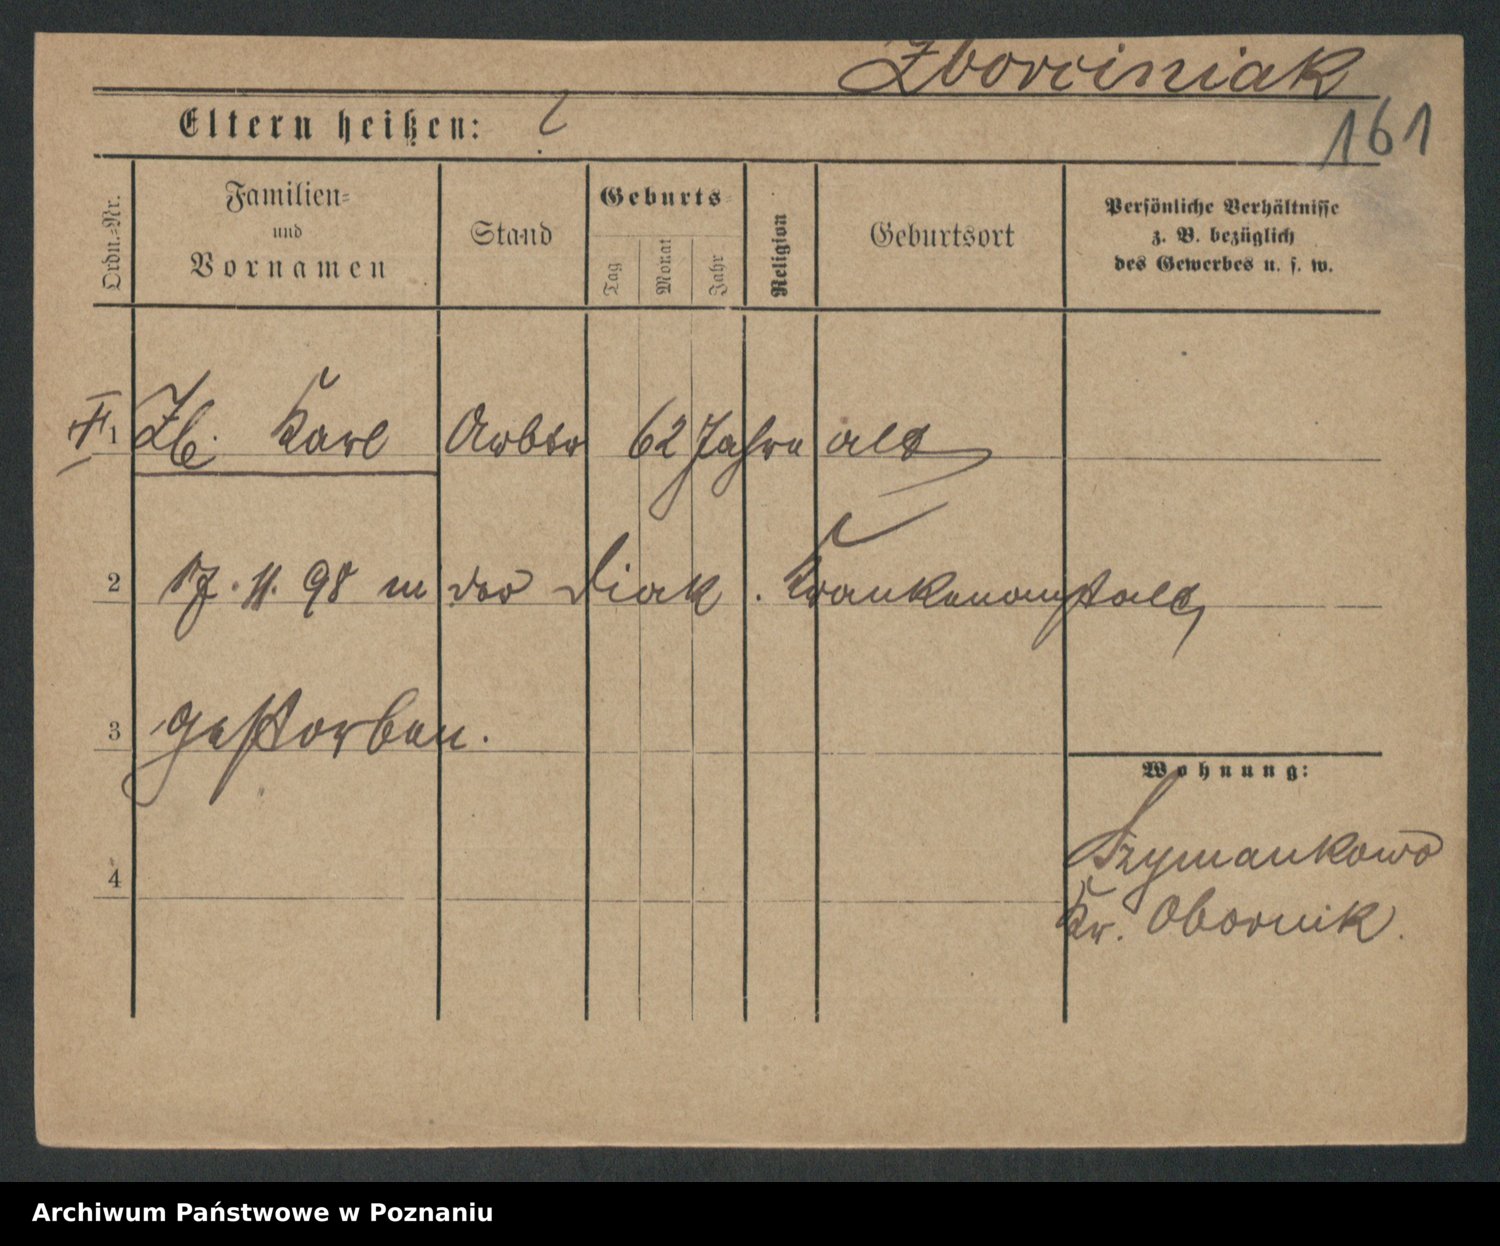 Zborciniak
161
Eltern heißen: ?
Ordn.=Nr.
Familien=
und
Vornamen
Stand
Geburts=
Tag
Monat
Jahr
Religion
Geburtsort
Persönliche Verhältnisse
z. B. bezüglich
des Gewerbes u. s. w.
1 Zb. Karl Arbtr 62 Jahre alt
2 17. 11. 98 in der Diak. Krankenanstalt
3 gestorben.
Wohnung:
4
Szymankowo
Kr. Obornik.
Archiwum Państwowe w Poznaniu